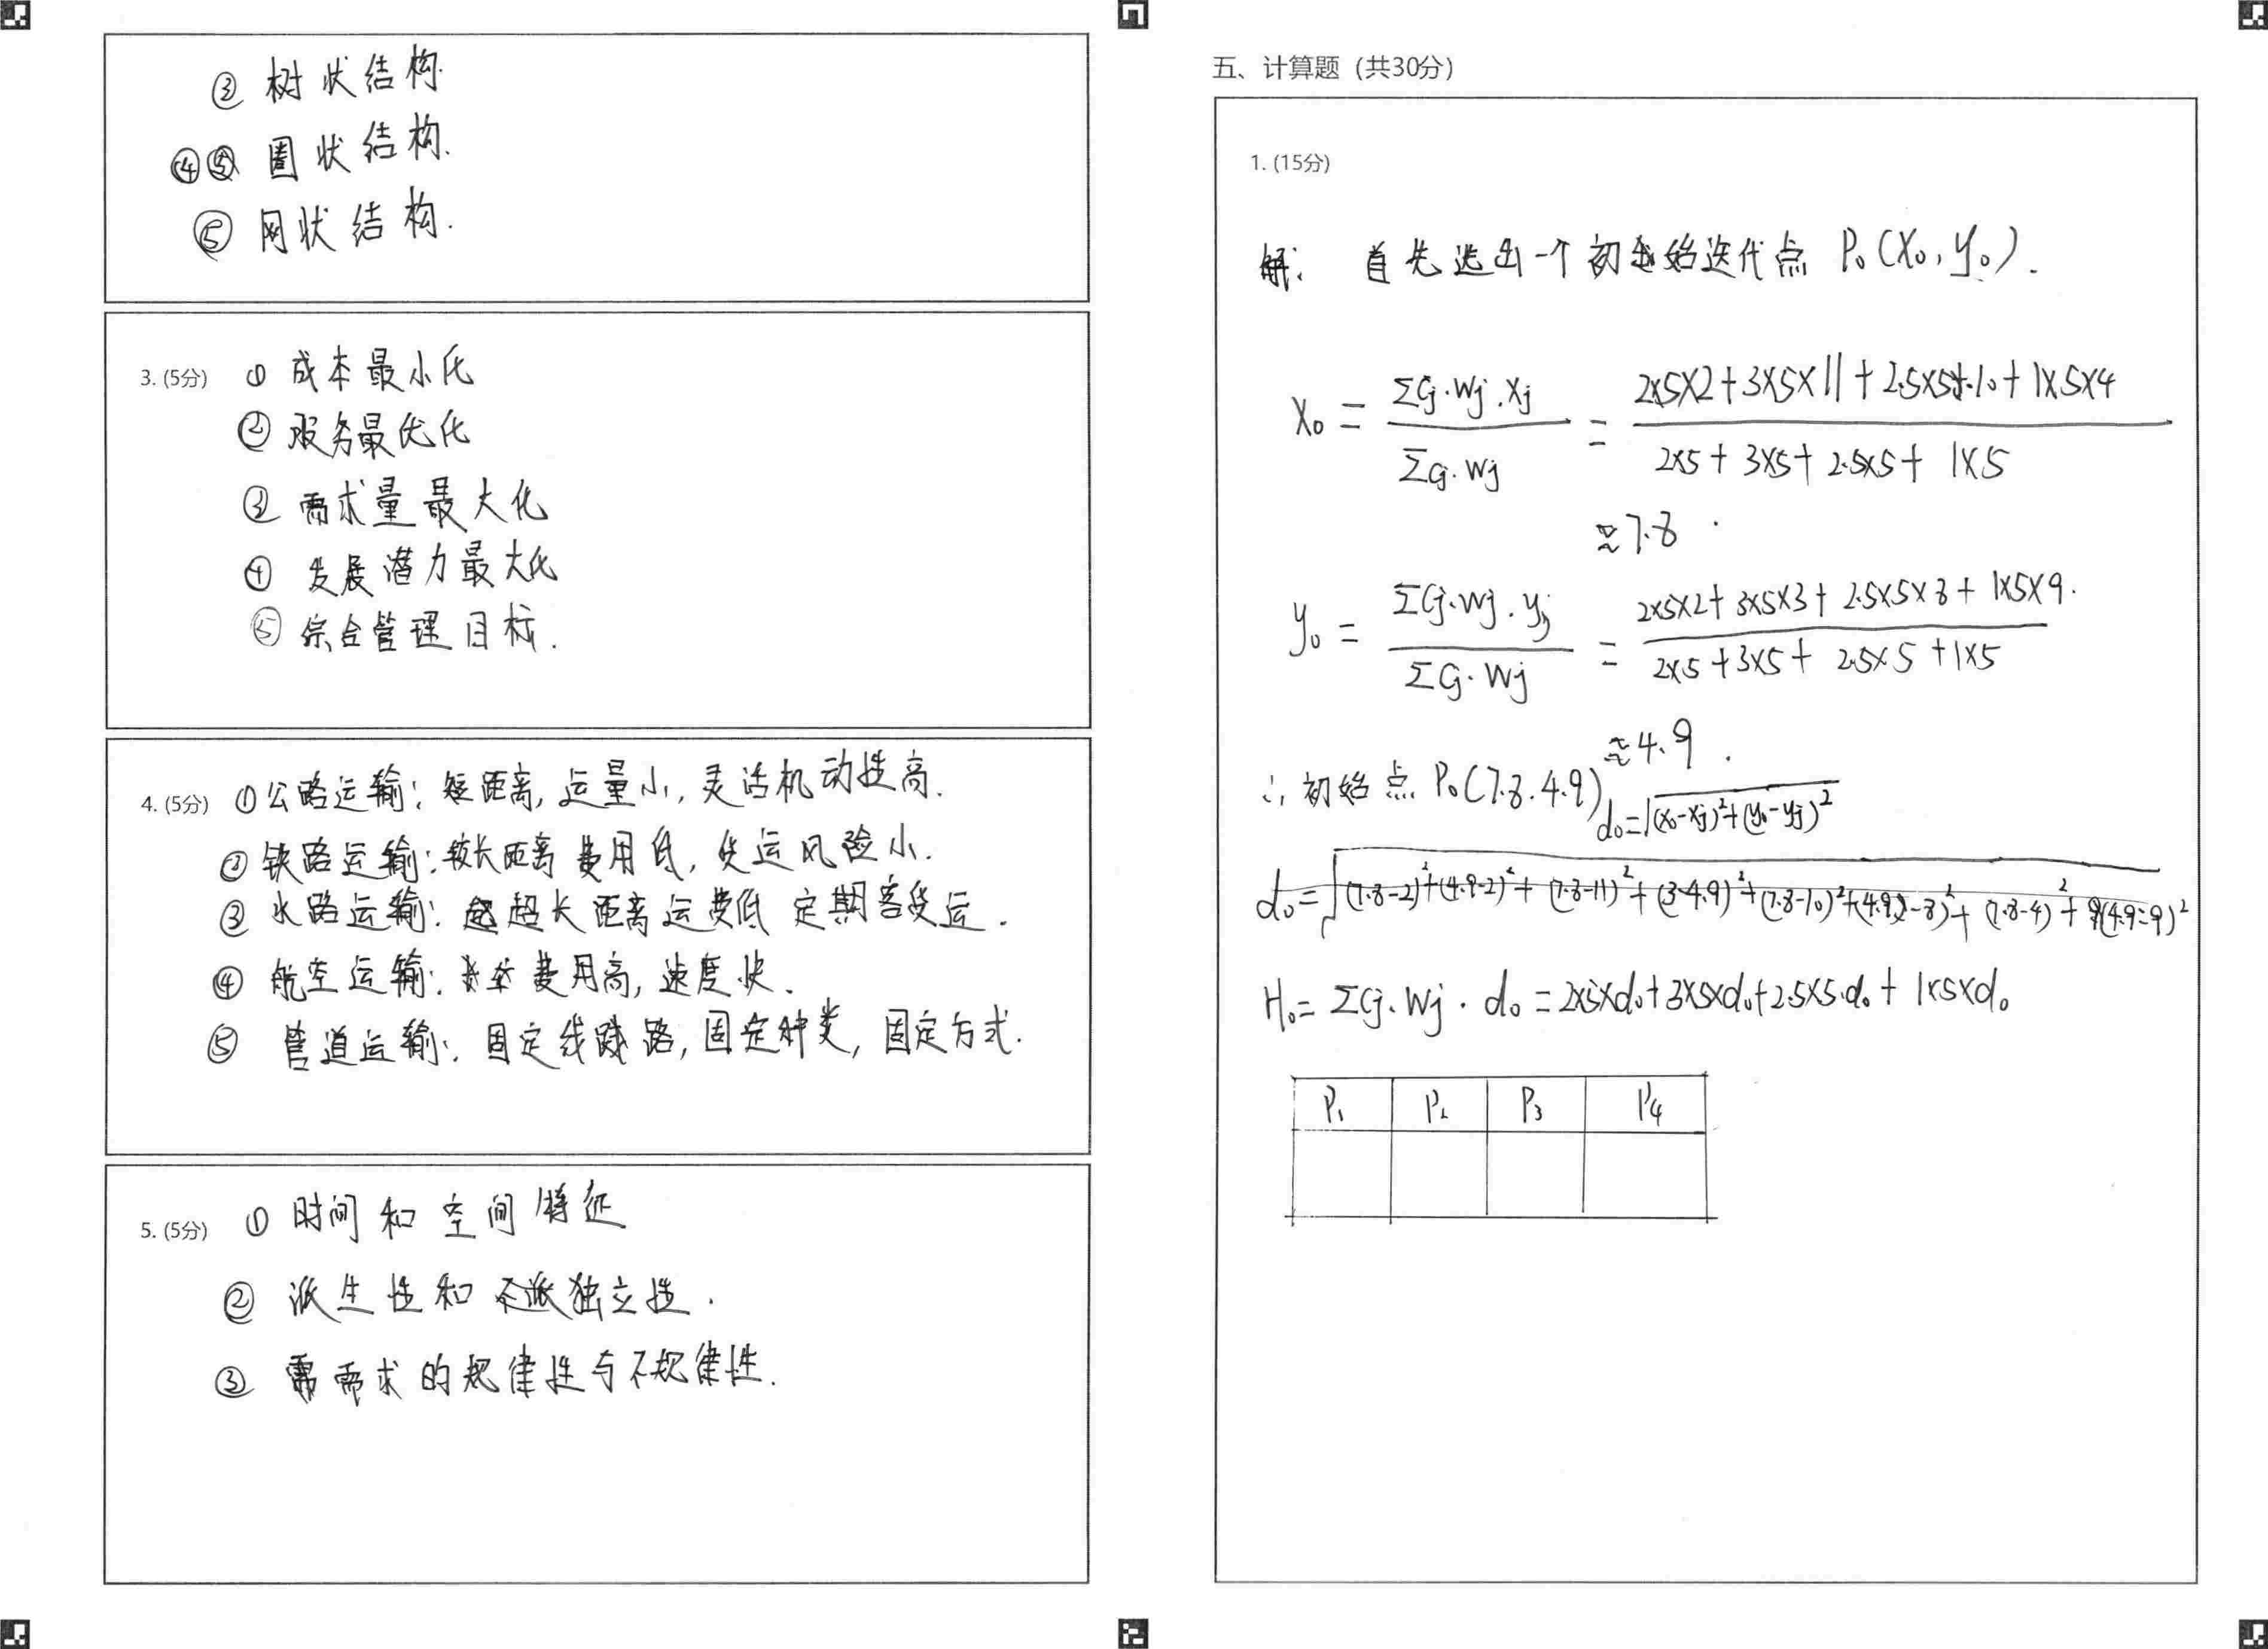 ③ 树状结构.
④ 圈状结构.
⑤ 网状结构.
3. (5分) ① 成本最小化
② 服务最优化
③ 需求量最大化
④ 发展潜力最大化
⑤ 综合管理目标.
4. (5分) ①公路运输: 短距离, 运量小, 灵活机动性高.
② 铁路运输: 较长距离 费用低, 货运风险小.
③ 水路运输: 超长距离运费低 定期客货运.
④ 航空运输: 费用高, 速度快.
⑤ 管道运输: 固定线路, 固定种类, 固定方式.
5. (5分) ① 时间和空间特征
② 派生性和独立性.
③ 需求的规律性与不规律性.
五、计算题 (共30分)
1. (15分)
解: 首先选出一个初始迭代点 P₀(X₀, y₀).
X₀ = ΣCj·Wj·Xj / ΣCj·Wj = 2×5×2+3×5×11+2.5×5×10+1×5×4 / 2×5+3×5+2.5×5+1×5
≈7.8
y₀ = ΣCj·Wj·yj / ΣCj·Wj = 2×5×2+3×5×3+2.5×5×8+1×5×9. / 2×5+3×5+2.5×5+1×5
≈4.9.
∴ 初始点 P₀(7.8. 4.9) d₀=√(x₀-xj)²+(y₀-yj)²
d₀=√(7.8-2)²+(4.9-2)²+(7.8-11)²+(3-4.9)²+(7.8-10)²+(4.9-8)²+(7.8-4)²+(4.9-9)²
H₀=ΣCj·Wj·d₀=2×5×d₀+3×5×d₀+2.5×5·d₀+1×5×d₀
P₁ P₂ P₃ P₄